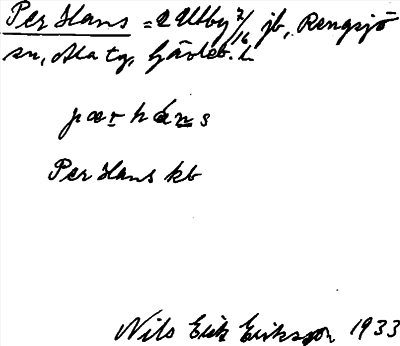 Per Hans = 2 Ullby 2/16 jb, Rengsjö
sn, Ala tg, Gävleb. L
pær háns
Per Hans kb
Nils Erik Eriksson 1933